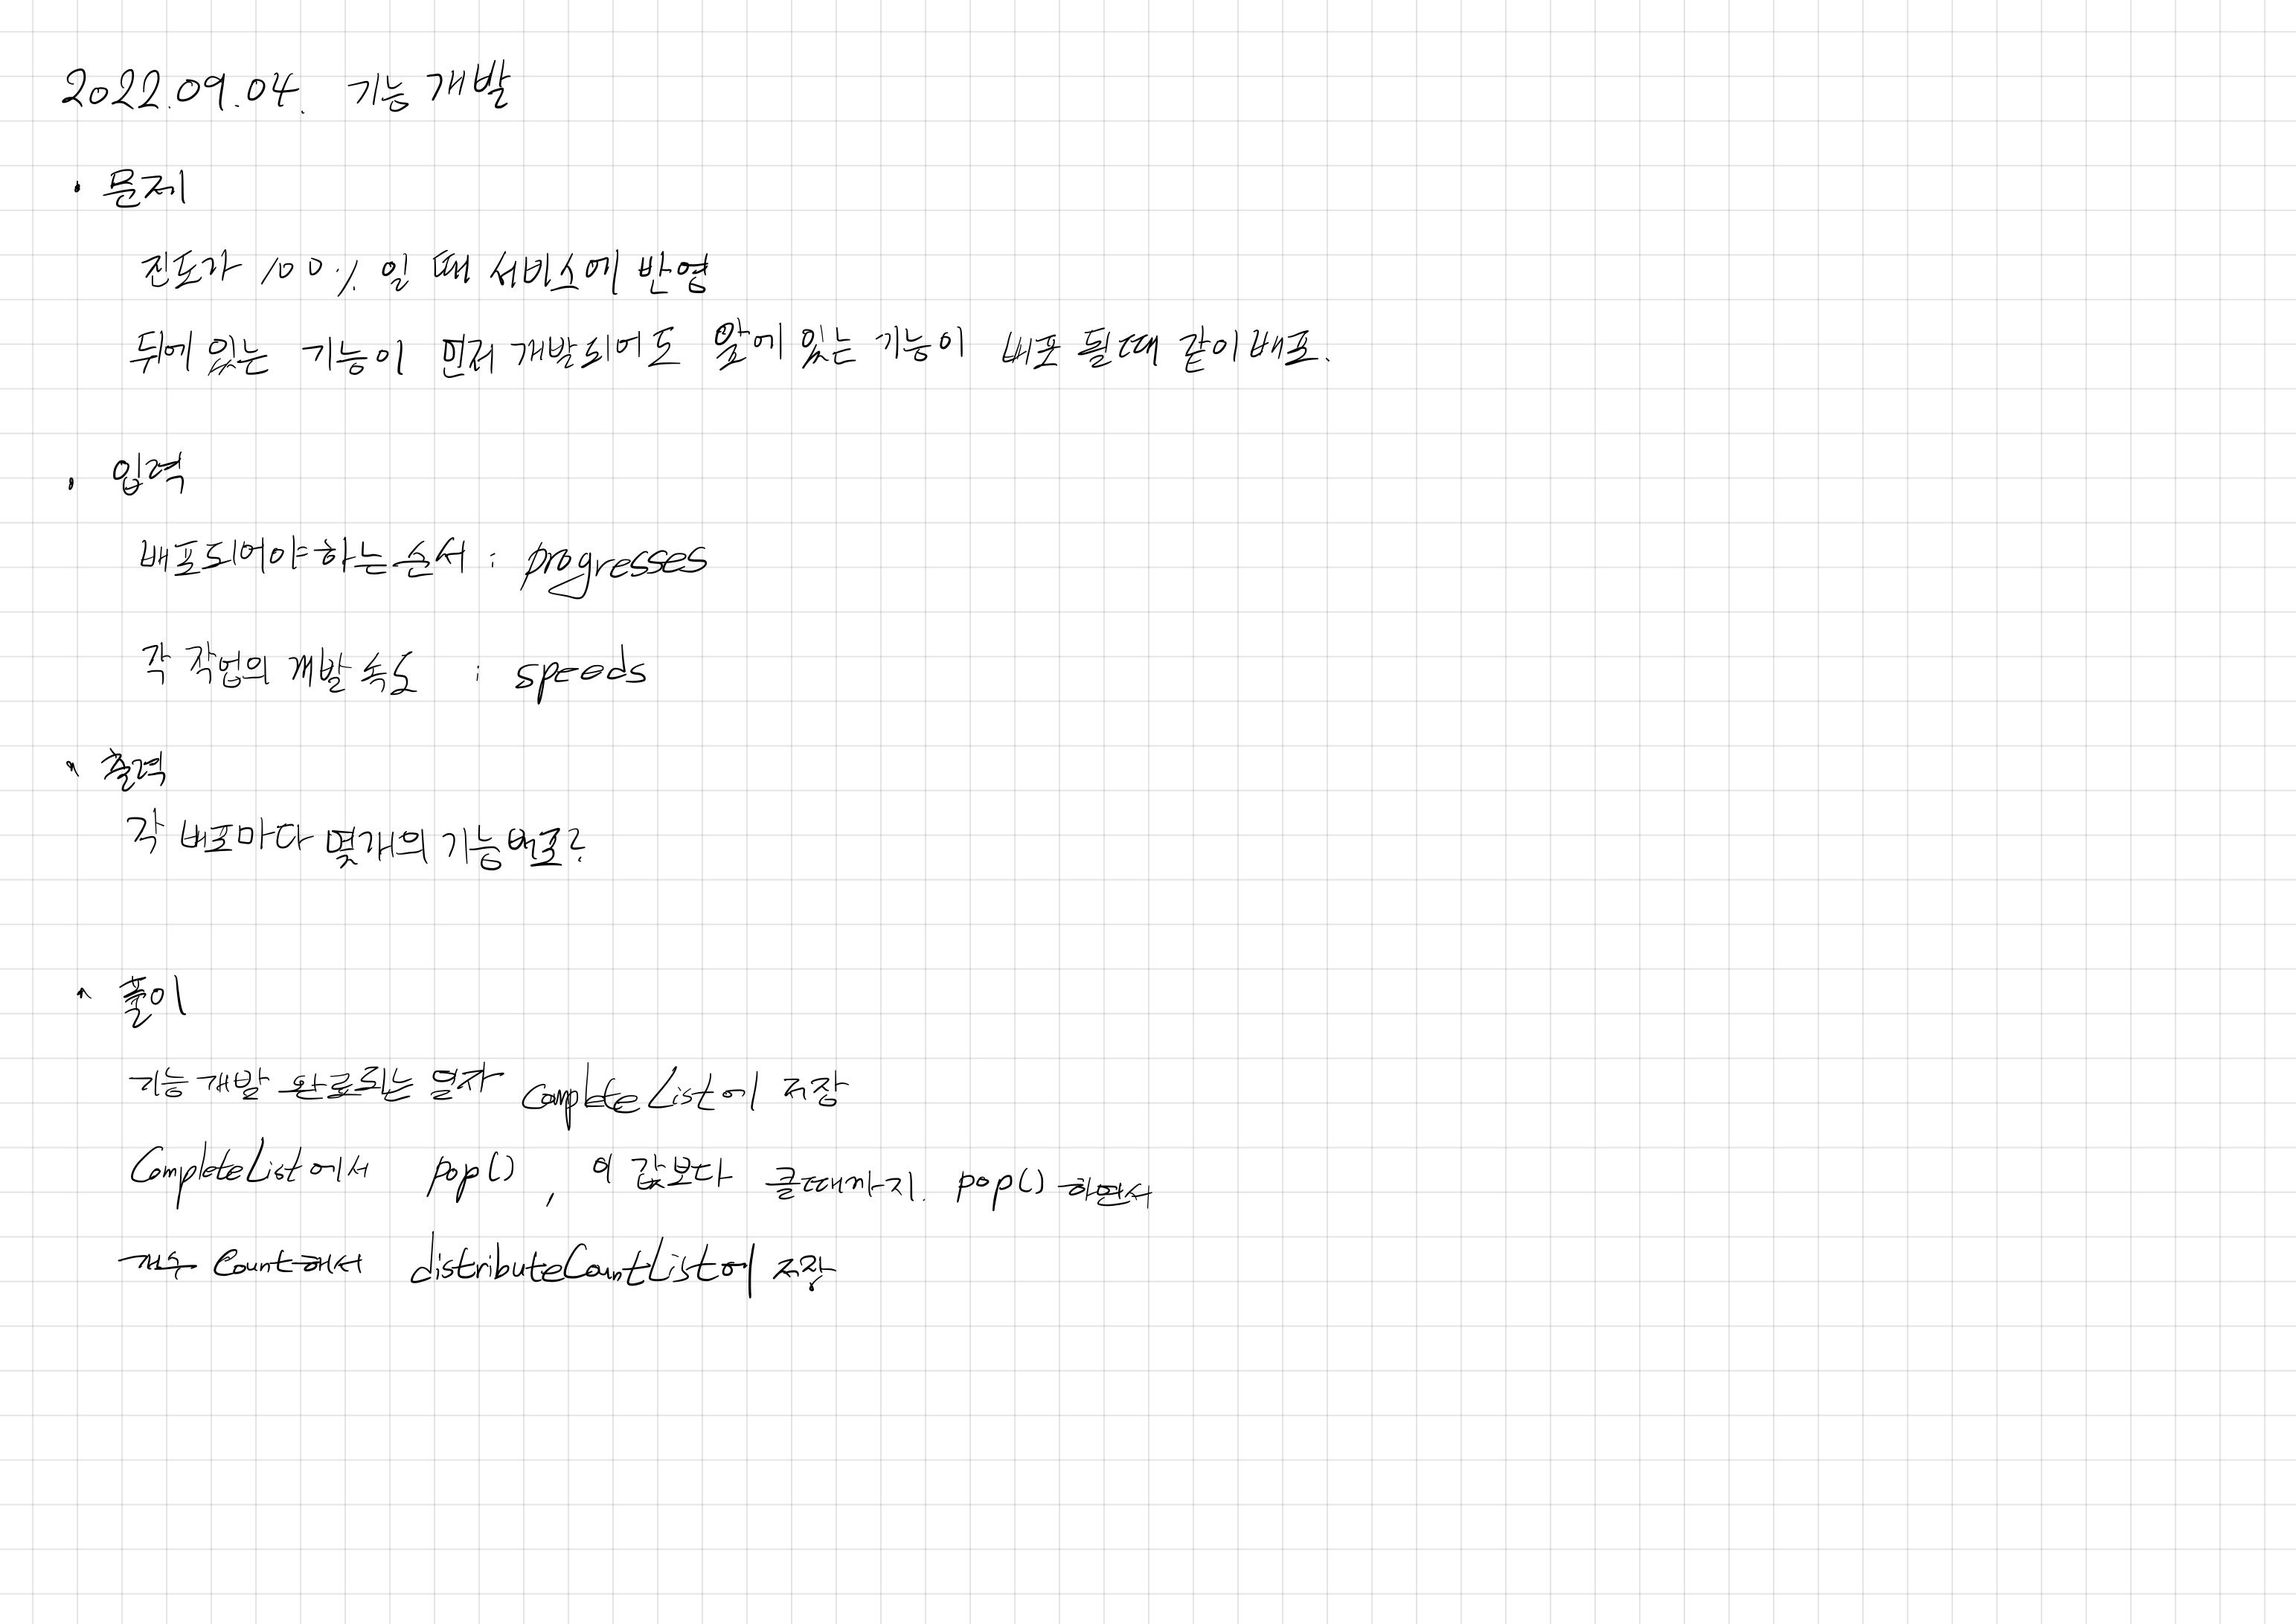 2022.09.04. 기능 개발
· 문제
진도가 100% 일 때 서비스에 반영
뒤에 있는 기능이 먼저 개발되어도 앞에 있는 기능이 배포 될때 같이 배포.
· 입력
배포되어야하는 순서 : progresses
각 작업의 개발 속도 : speeds
· 출력
각 배포마다 몇개의 기능 배포?
· 풀이
기능 개발 완료되는 일자 completeList에 저장
CompleteList에서 pop() , 이 값보다 클때까지. pop() 하면서
개수 Count해서 distributeCountList에 저장